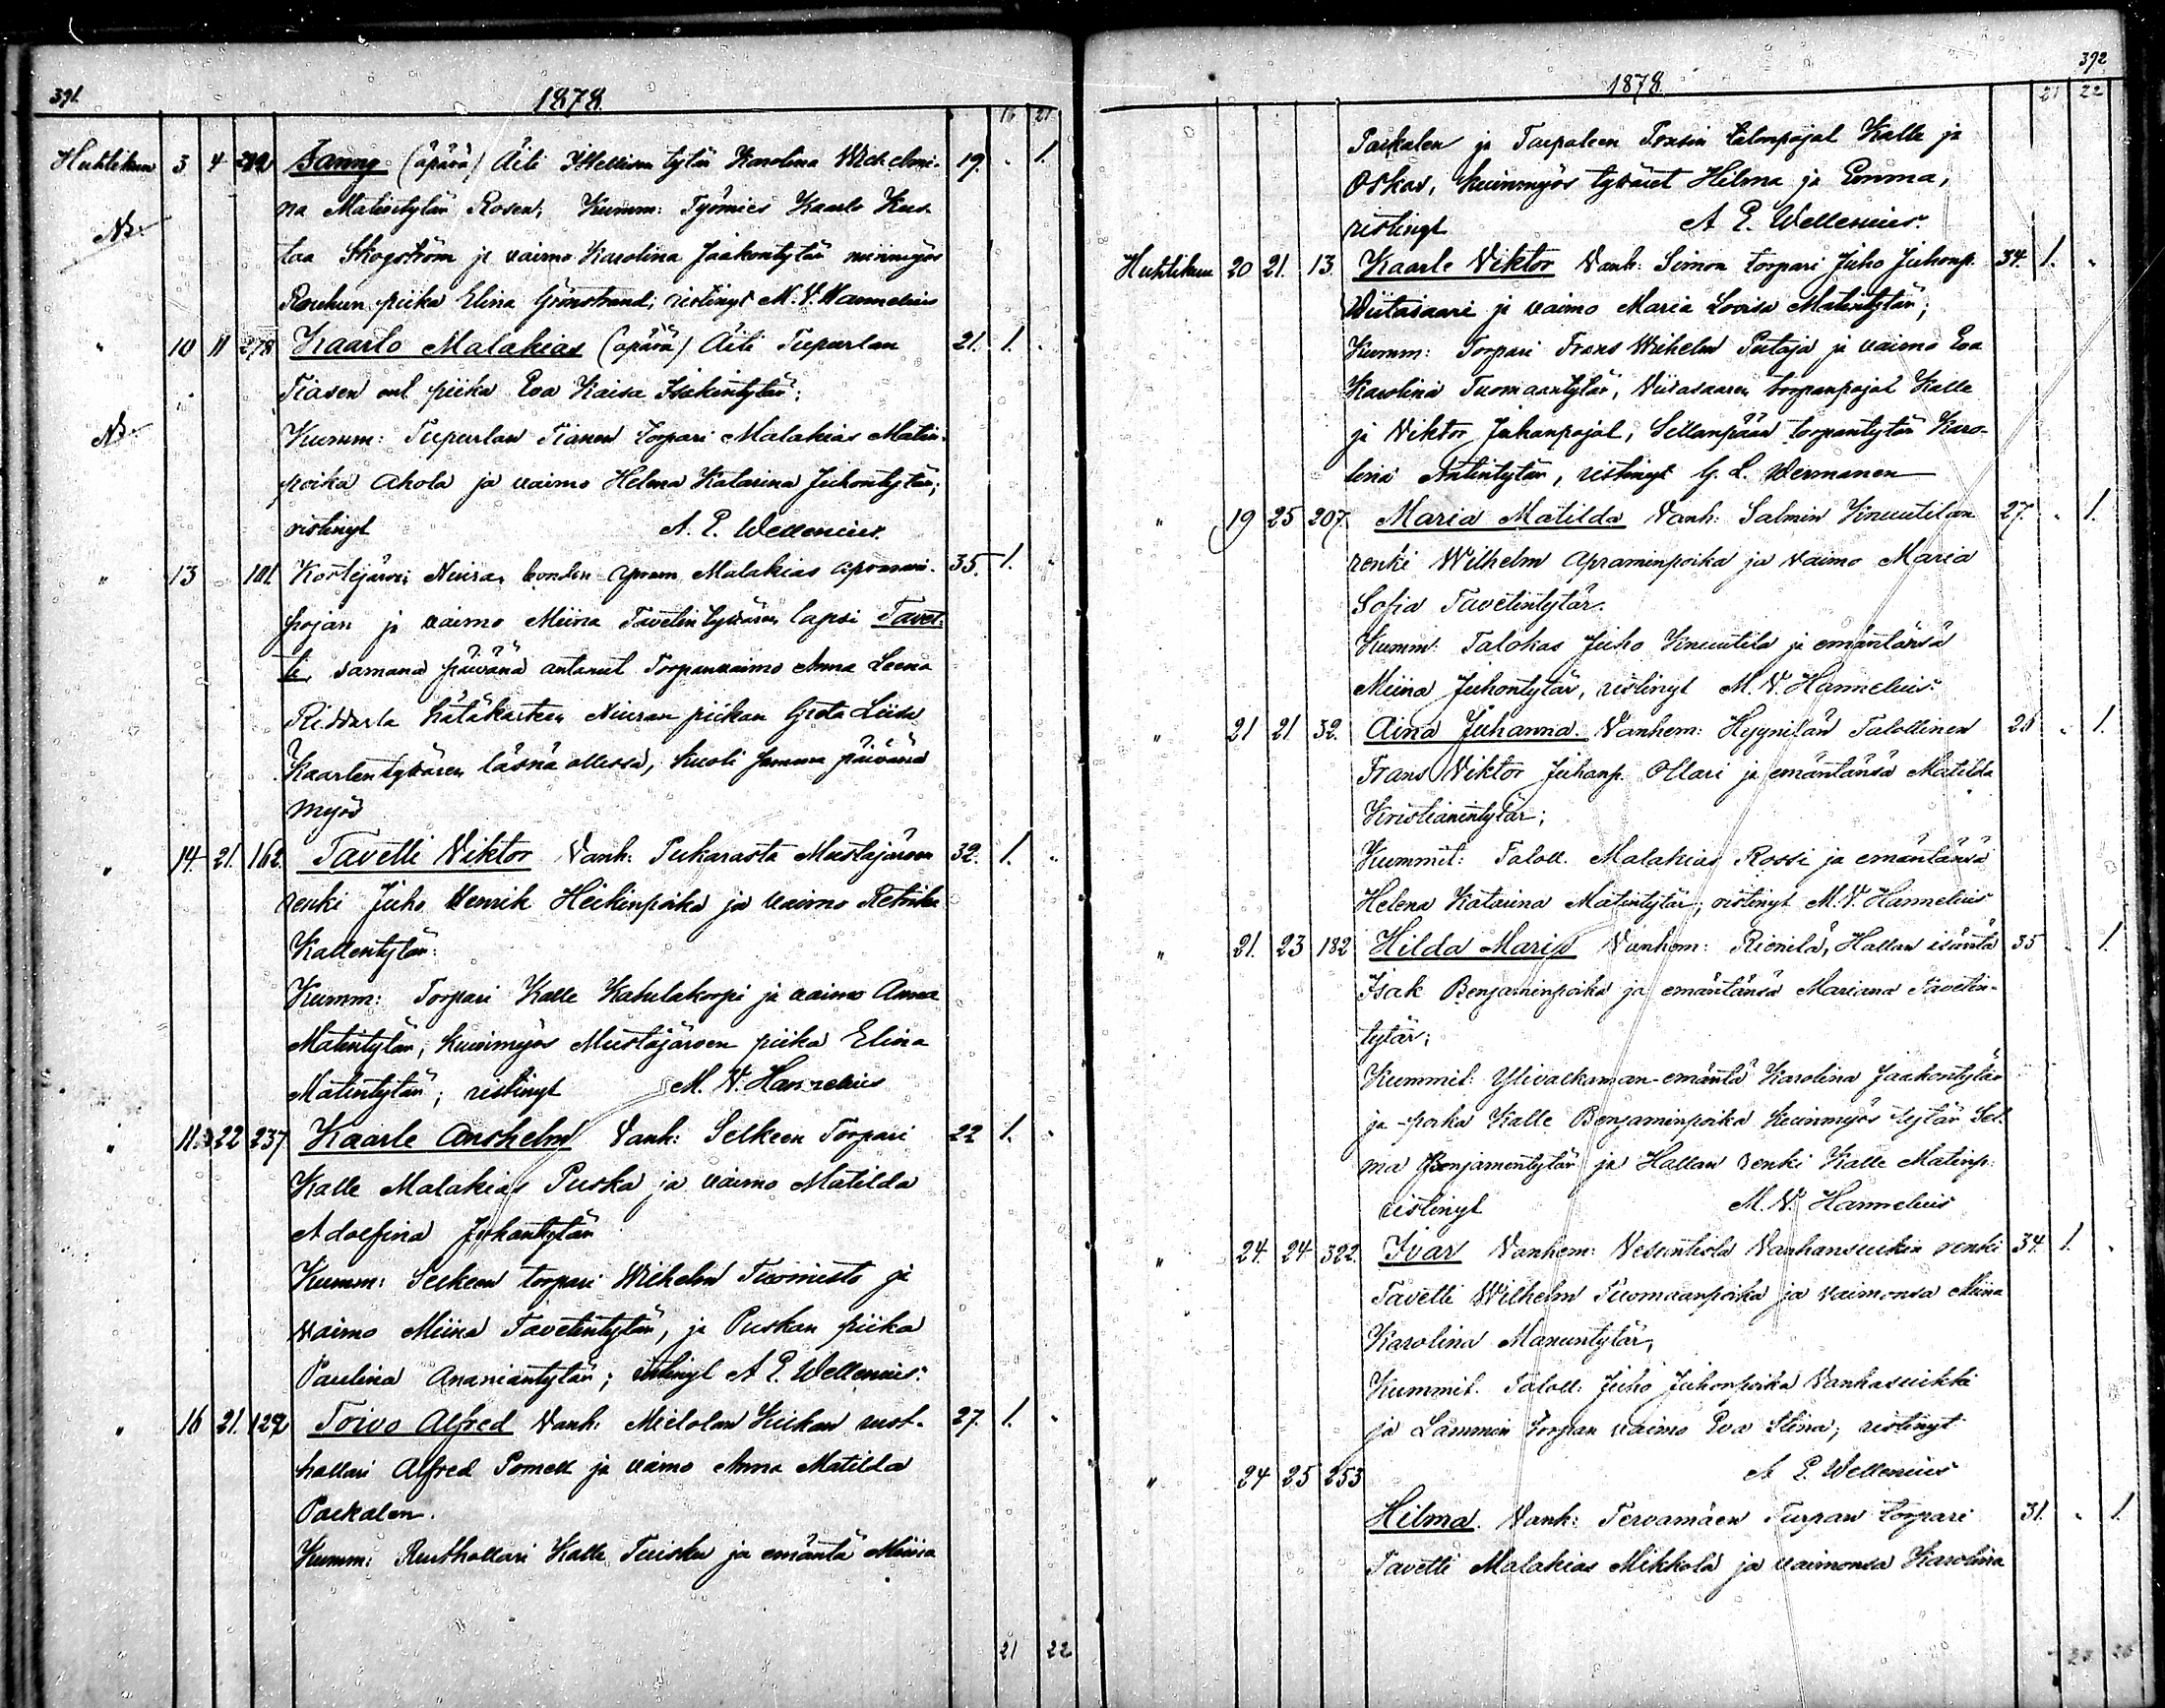 391.
1878.
16 21
Huhtikuu 3 4 Fanny (äpärä) Äiti Itsellisen tytär Karolina Wilhelmi- 19. " 1.
NB.
na Matintytär Rosen; Kumm: Työmies Kaarlo Kus-
taa Skogström ja vaimo Karolina Jaakontytär niinmyös
piika Elina Grönstrand; ristinyt M. V. Hannelius
" 10 11 278 Kaarlo Malakias (äpärä) Äiti 21. 1. "
piika Eva Kaisa Isakintytär;
NB.
Kumm: torpari Malakias Matin-
poika Ahola ja vaimo Helena Katarina Juhontytär;
ristinyt A. E. Wellenius.
" 13 101. Kortejärvi, Niura, Malakias 35. 1. "
pojan ja vaimo Miina Tavetintyttären lapsi Tavet-
ti, samana päivänä antanut Torpanvaimo Anna Leena
hätäkasteen Niuran piikan Greta Liisa
Kaarlentyttären läsnä ollessa, kuoli samana päivänä
myös
" 14. 21. 162. Tavetti Viktor Vanh: Mustajärven 32. 1. "
renki Juho Henrik Heikinpoika ja vaimo
Kallentytär:
Kumm: Torpari Kalle ja vaimo Anna
Matintytär, kuinmyös Mustajärven piika Elina
Matintytär; ristinyt M. V. Hannelius
" 11. 22 237. Kaarle Anshelm Vanh: Selkeen Torpari 22 1. "
Kalle Malakias Puska ja vaimo Matilda
Adolfina Juhantytär
Kumm: Selkeen torpari Wilhelm Tuomisto ja
vaimo Miina Tavetintytär, ja Puskan piika
Paulina Ananiantytär; ristinyt A. E. Wellenius.
" 16 21. 129 Toivo Alfred Vanh: Mietolan rust- 27. 1. "
hollari Alfred ja vaimo Anna Matilda
Packalen.
Kumm: Rusthollari Kalle Tuisku ja emäntä Miina
21 22
392
1878.
21 22
Packalen ja talonpojat Kalle ja
Oskar, kuinmyös tyttäret Hilma ja Emma,
ristinyt A. E. Wellenius.
Huhtikuu 20 21. 13. Kaarle Viktor Vanh: Simon torpari Juho Juhonp. 34. 1. "
Wiitasaari ja vaimo Maria Lovisa Matintytär;
Kumm: Torpari Frans Wilhelm ja vaimo Eva
Karolina Tuomaantytär, Viitasaaren torpanpojat Kalle
ja Viktor Juhanpojat, Sillanpään torpantytär Karo-
lina Antintytär, ristinyt G. L. Wermanen
" 19 25 207. Maria Matilda Vanh: Salmin Knuutilan 27. " 1.
renki Wilhelm Apraminpoika ja vaimo Maria
Sofia Tavetintytär.
Kumm: Talokas Juho Knuutila ja emäntänsä
Miina Juhontytär, ristinyt M. V. Hannelius.
" 21 21 32. Aina Juhanna. Vanhem: Hyynilän Talollinen 26 " 1.
Frans Viktor Juhanp. Ollari ja emäntänsä Matilda
Kristianintytär;
Kummit: Taloll. Malakias Rossi ja emäntänsä
Helena Katarina Matintytär; ristinyt M. V. Hannelius
" 21. 23 182 Hilda Maria Vanhem: Rienilä, Hallan isäntä 35 " 1.
Isak Benjaminpoika ja emäntänsä Mariana Tavetin-
tytär;
Kummit: Ylivalkaman-emäntä Karolina Jaakontytär
ja -poika Kalle Benjaminpoika kuinmyös tytär Sel-
ma Benjamintytär ja Hallan renki Kalle Matinp.
ristinyt M. V. Hannelius
" 24. 24 322. Ivar Vanhem: Vesuntiola Vanhansuikin renki 34. 1. "
Tavetti Wilhelm Tuomaanpoika ja vaimonsa Miina
Karolina Manuntytär,
Kummit. Taloll: Juho Juhonpoika Vanhasuikki
ja Lammin torpan vaimo Eva Stina; ristinyt
A E. Wellenius
" 24 25 253
Hilma. Vanh: Tervamäen Turpan torpari 31. " 1.
Tavetti Malakias Mikkola ja vaimonsa Karolina